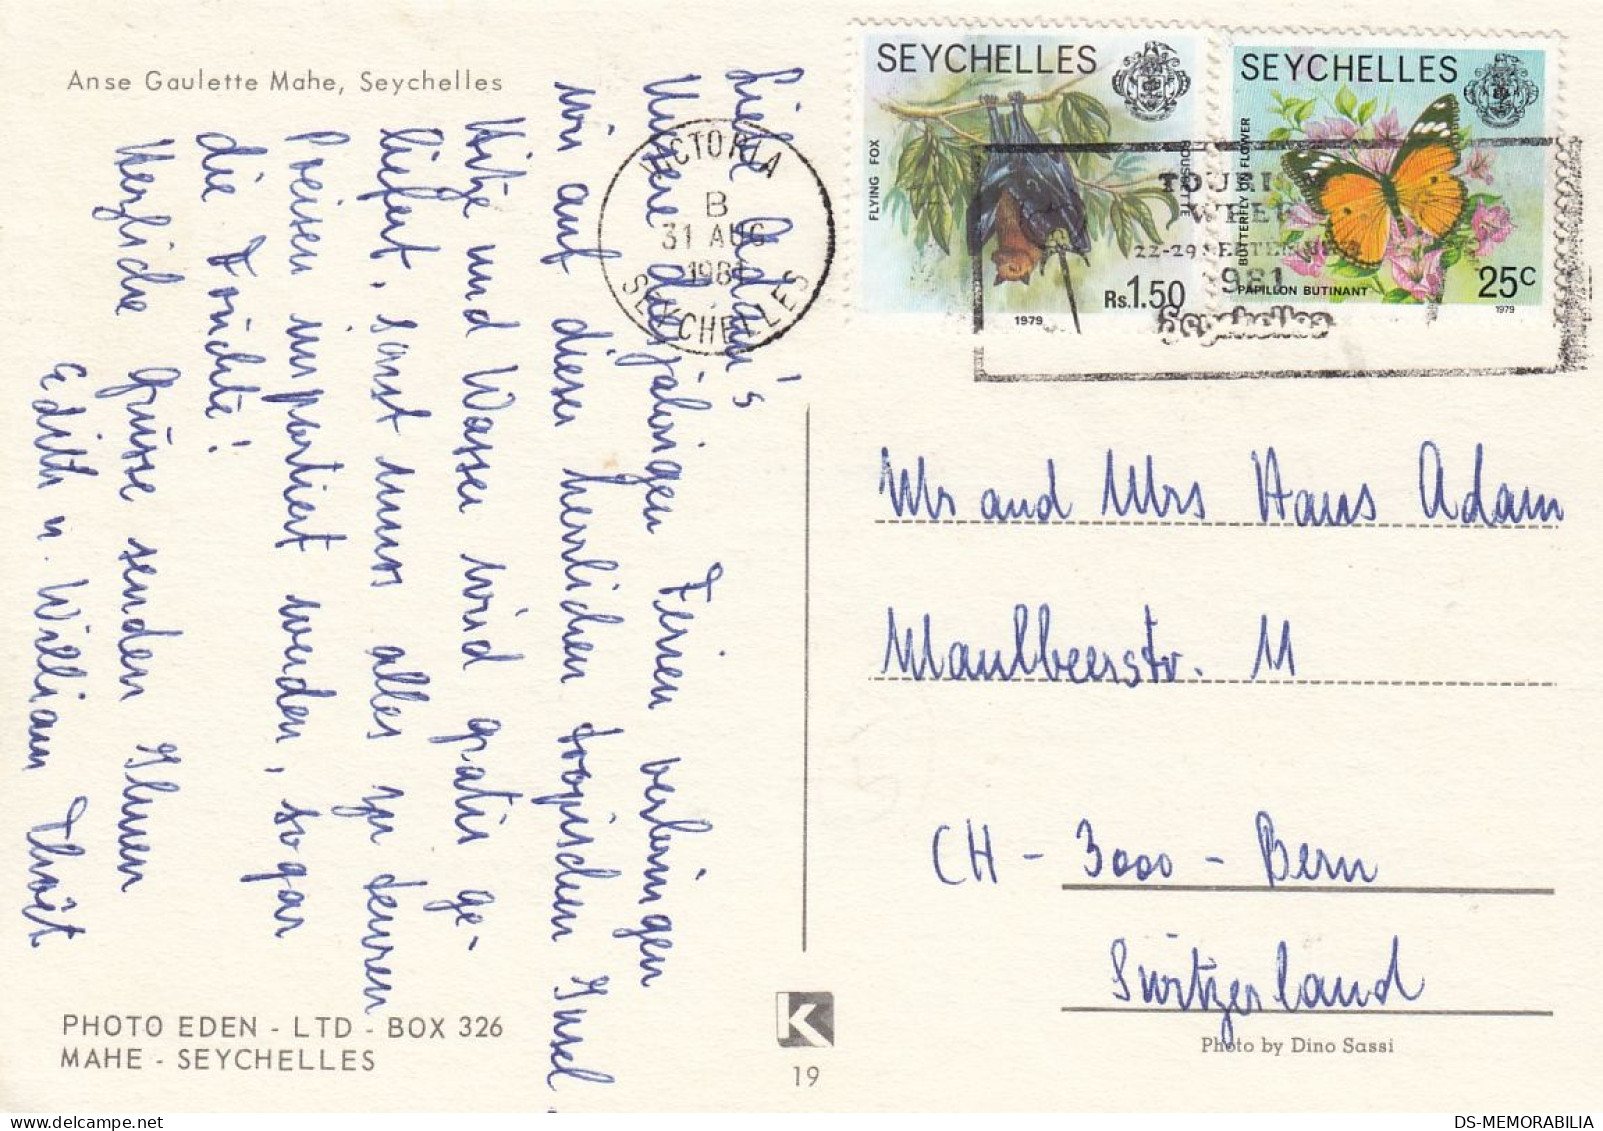 Anse Gaulette Mahe, Seychelles
Liebe Adam's
Unsere diesjährigen Ferien verbringen
wir auf dieser herrlichen tropischen Insel.
Hitze und Wasser wird gratis ge-
liefert, sonst muss alles zu teuren
Preisen importiert werden, sogar
die Früchte!
Herzliche Grüsse senden Ihnen
Edith u. William
PHOTO EDEN - LTD - BOX 326
MAHE - SEYCHELLES
VICTORIA
B
31 AUG
1981
SEYCHELLES
SEYCHELLES
FLYING FOX
ROUSSETTE
Rs.1.50
1979
SEYCHELLES
BUTTERFLY ON FLOWER
PAPILLON BUTINANT
25c
1979
TOURISM
WEEK
22-29 SEPTEMBER
1981
Seychelles
Mr and Mrs Hans Adam
Maulbeerstr. 11
CH - 3000 - Bern
Switzerland
Photo by Dino Sassi
K
19
DS-MEMORABILIA